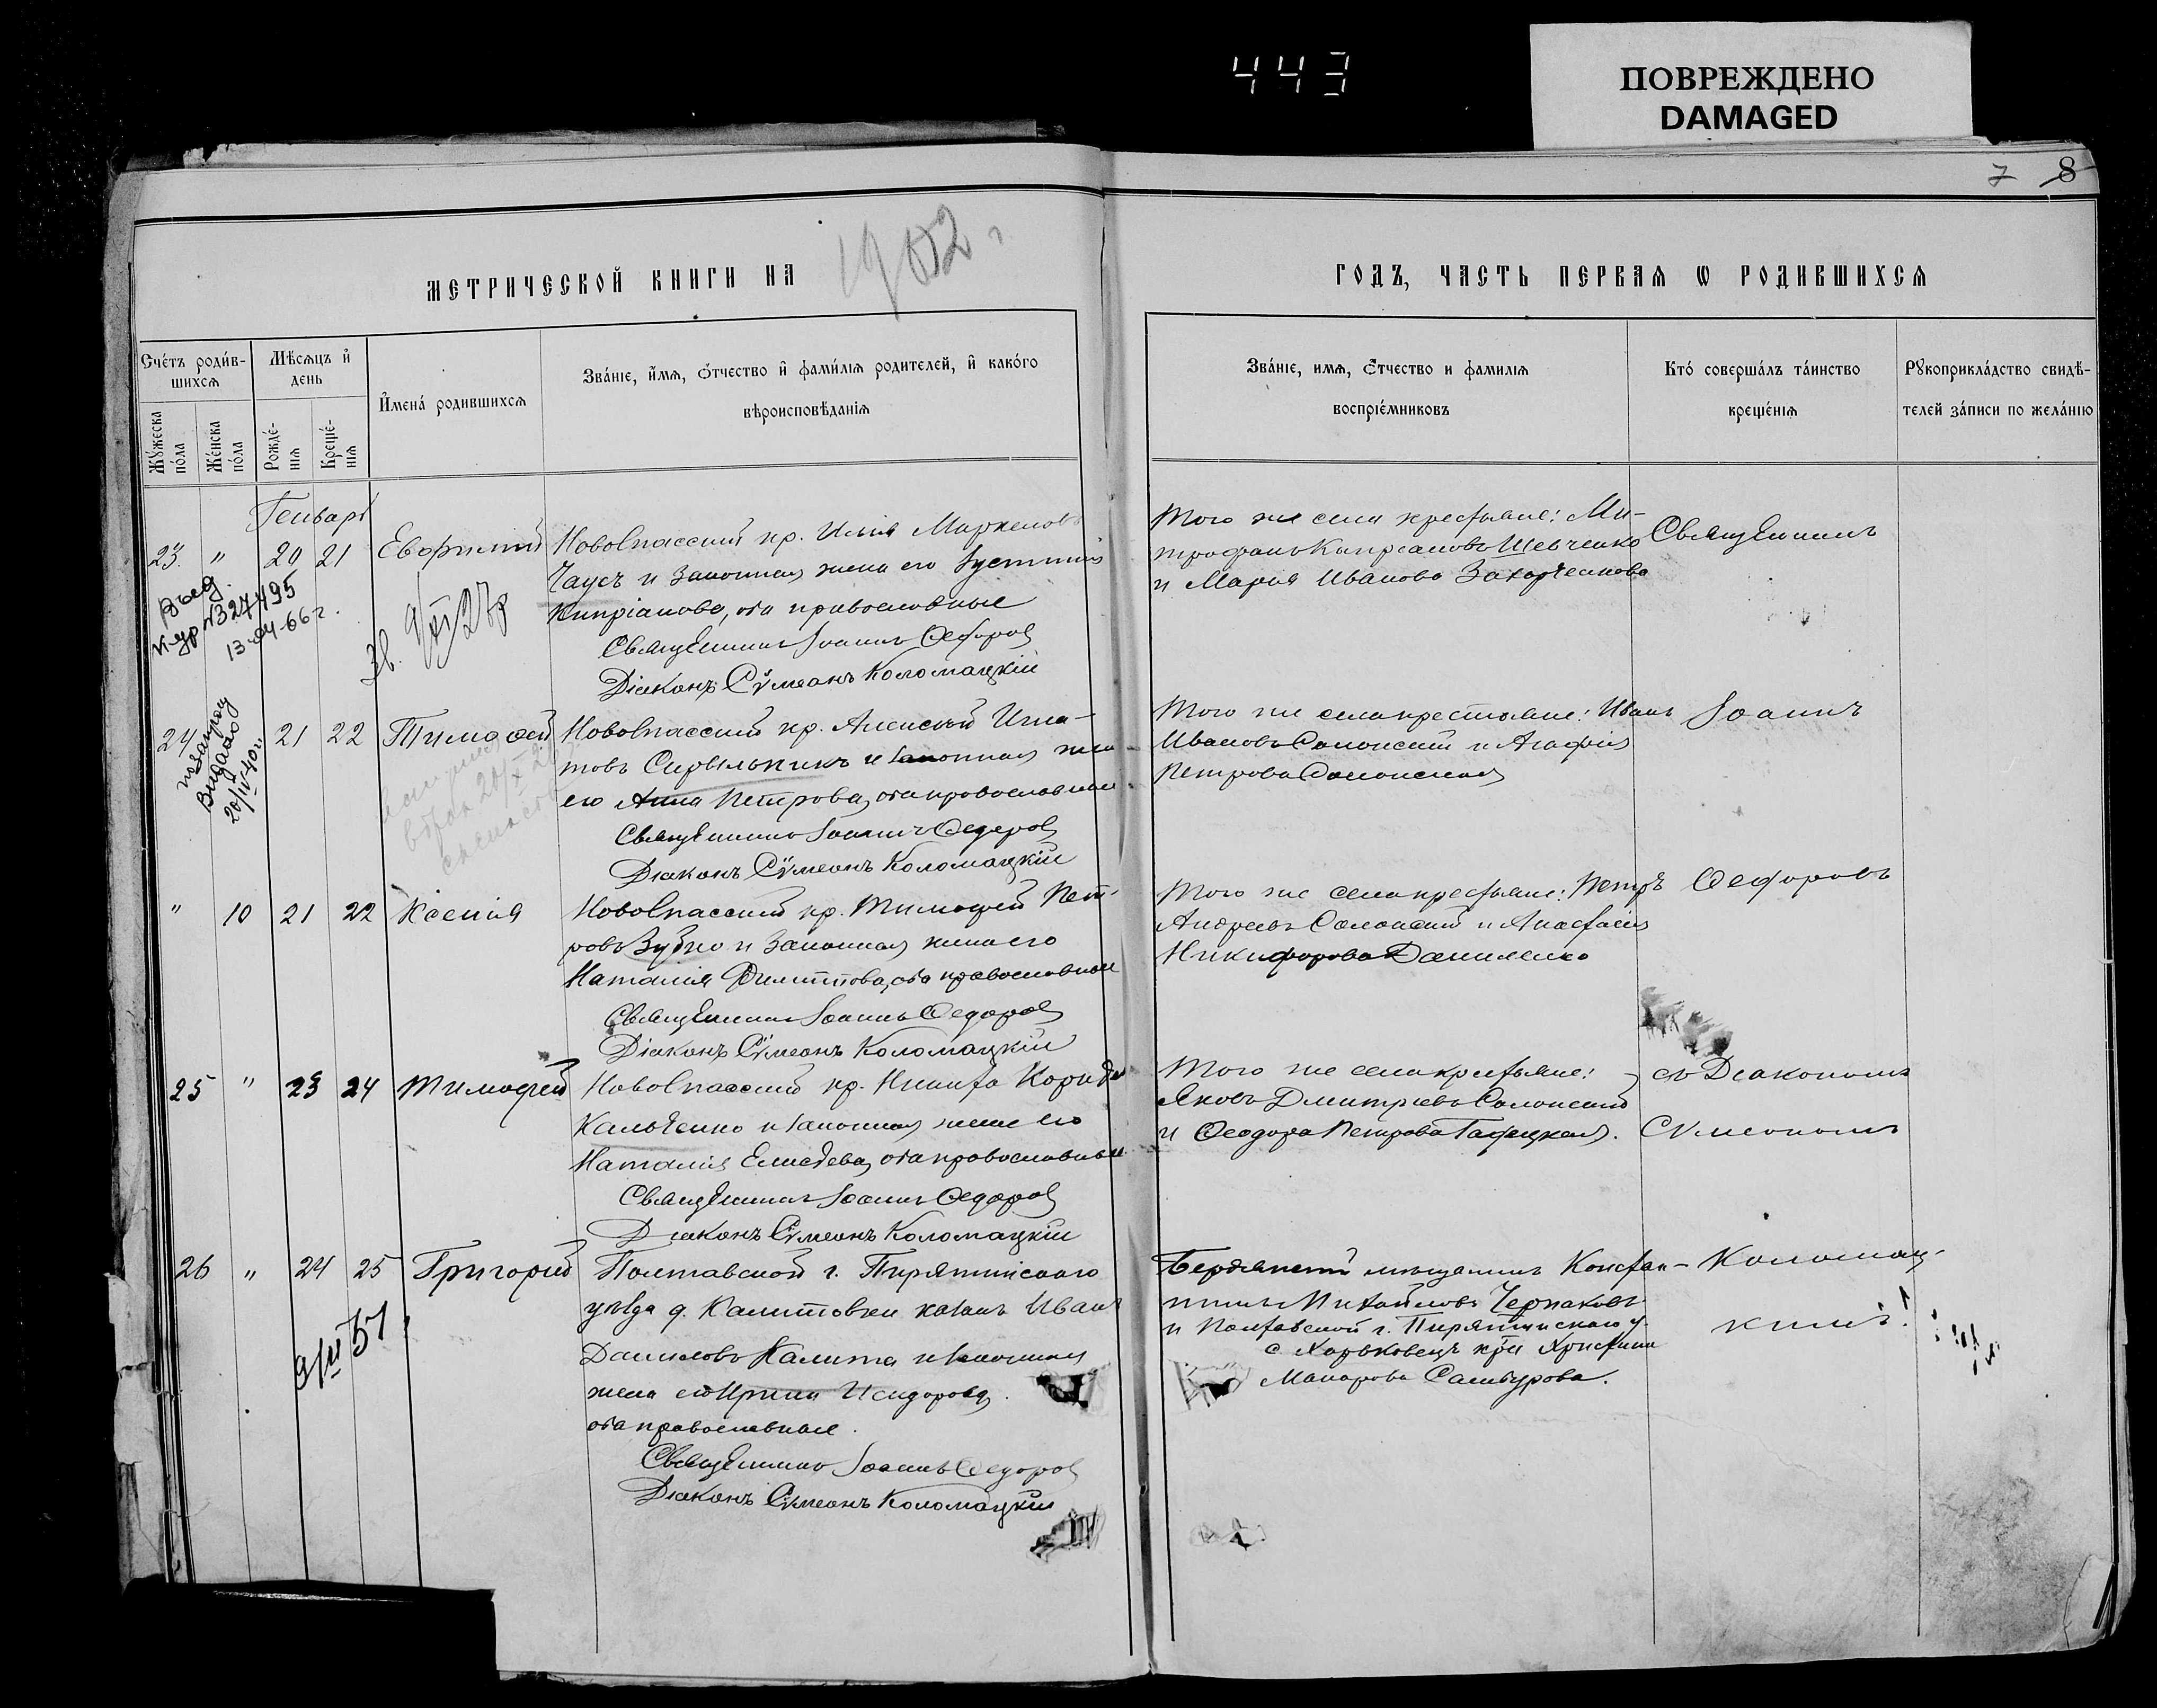 443
ПОВРЕЖДЕНО
DAMAGED
7 8
МЕТРИЧЕСКОЙ КНИГИ НА 1902 г
ГОДЪ, ЧАСТЬ ПЕРВАЯ Ѡ РОДИВШИХСЯ
Счетъ родившихся
Мѣсяцъ и день
Имена родившихся
Званіе, имя, отчество и фамилія родителей, и какого
вѣроисповѣданія
Мужеска пола
Женска пола
Рожденія
Крещенія
Званіе, имя, отчество и фамилія
воспріемниковъ
Кто совершалъ таинство
крещенія
Рукоприкладство свидѣ-
телей записи по желанію
Генварь
23. " 20 21 Евфимій
Новоспасскій кр. Илія Маркеловъ
Чаусъ и законная жена его Іустинія
Кипріанова, оба православные
Священникъ Іоаннъ Ѳедоровъ
Діаконъ Сѵмеонъ Коломацкій
Того же села крестьяне: Ми-
трофанъ Кипріановъ Шевченко
и Марія Иванова Захарченкова
Священникъ
№ 327495
13-04-66 г.
24 21 22 Тимоѳей
Новоспасскій кр. Алексѣй Игна-
товъ Сирвыльникъ и законная жена
его Анна Петрова, оба православные
Священникъ Іоаннъ Ѳедоровъ
Діаконъ Сѵмеонъ Коломацкій
Того же села крестьяне: Иванъ
Ивановъ Салонскій и Агафія
Петрова Салонская
Іоаннъ
Видано
20/IV-40 г.
" 10 21 22 Ксенія
Новоспасскій кр. Тимоѳей Пет-
ровъ Зубко и законная жена его
Наталія Филиппова, оба православные
Священникъ Іоаннъ Ѳедоровъ
Діаконъ Сѵмеонъ Коломацкій
Того же села крестьяне: Петръ
Андреевъ Салонскій и Анастасія
Никифорова Даниленко
Ѳедоровъ
25 " 23 24 Тимоѳей
Новоспасскій кр. Никита
Кальченко и законная жена его
Наталія Елисѣева, оба православные
Священникъ Іоаннъ Ѳедоровъ
Діаконъ Сѵмеонъ Коломацкій
Того же села крестьяне:
Яковъ Дмитріевъ Салонскій
и Ѳеодора Петрова
съ Діакономъ
Сѵмеономъ
26 " 24 25 Григорій
Полтавской г. Пирятинскаго
уѣзда д. Калитовки казакъ Иванъ
Даниловъ Калита и законная
жена его Ирина Исидорова
оба православные.
Священникъ Іоаннъ Ѳедоровъ
Діаконъ Сѵмеонъ Коломацкій
Бердянскій мѣщанинъ Констан-
тинъ Михайловъ Черпаковъ
и Полтавской г. Пирятинскаго у.
с. Харьковецъ кр. Христина
Макарова Самбурова.
Коломац-
кимъ.